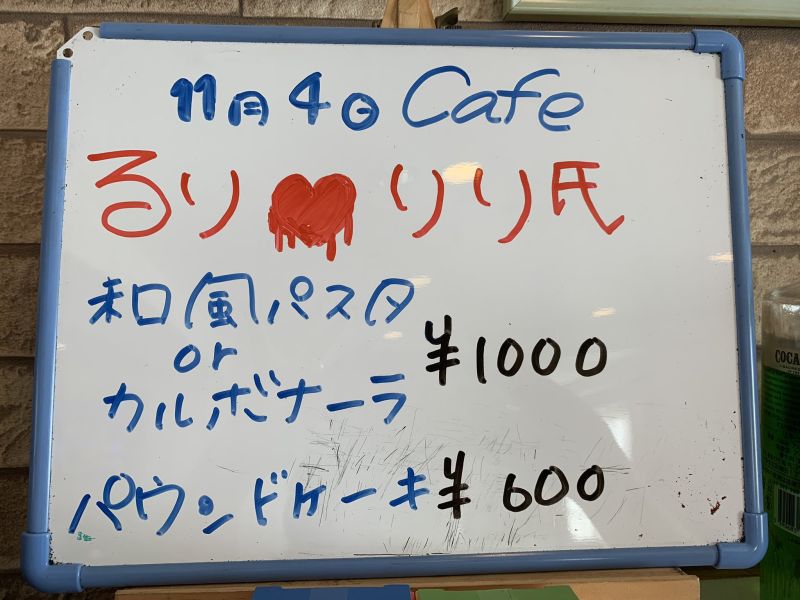 11月4日 Cafe
るり♥りり氏
和風パスタ
or
カルボナーラ
¥1000
パウンドケーキ ¥600
COCA